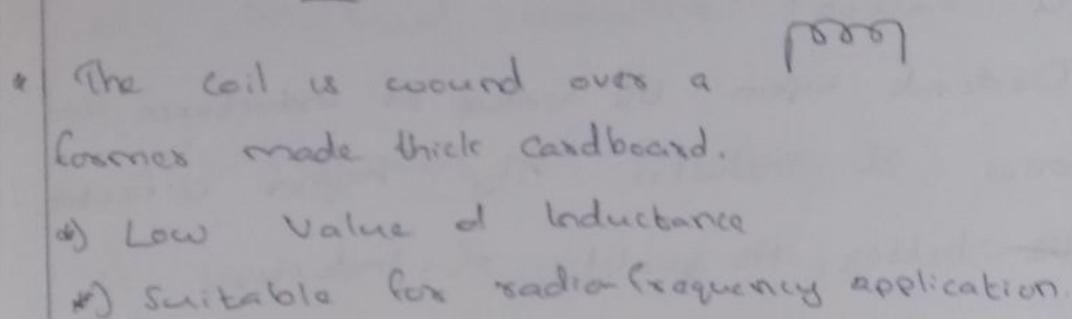 * The coil is wound over a
former made thick cardboard.
*) Low value of Inductance
*) Suitable for radio frequency application.